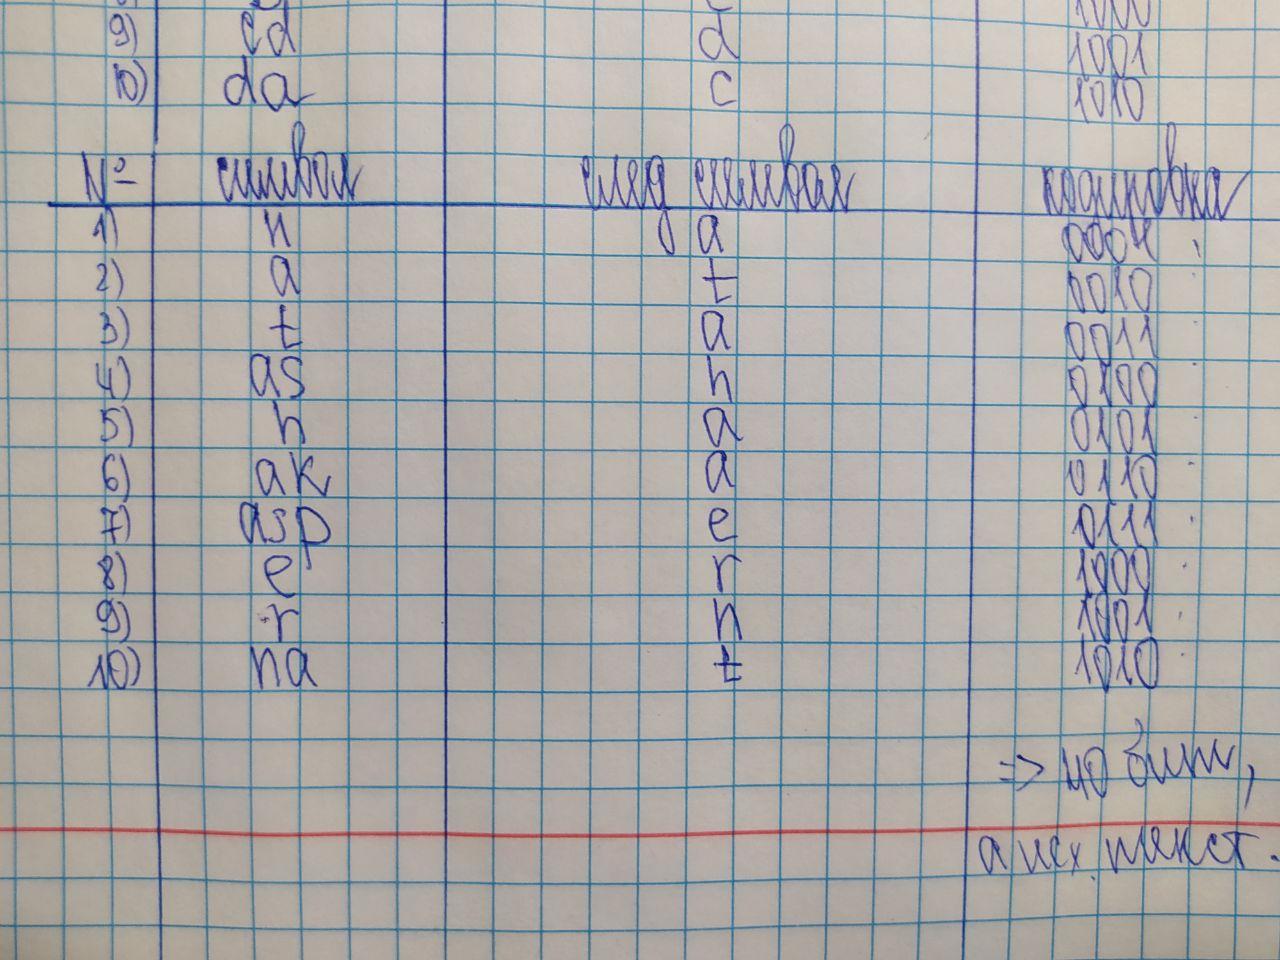 1000
9) cd d 1001
10) da c 1010
№ символ след символ кодировка
1) n a 0001
2) a t 0010
3) t a 0011
4) as h 0100
5) h a 0101
6) ak a 0110
7) asp e 0111
8) e r 1000
9) r n 1001
10) na t 1010
=> 40 бит,
а исх. текст.